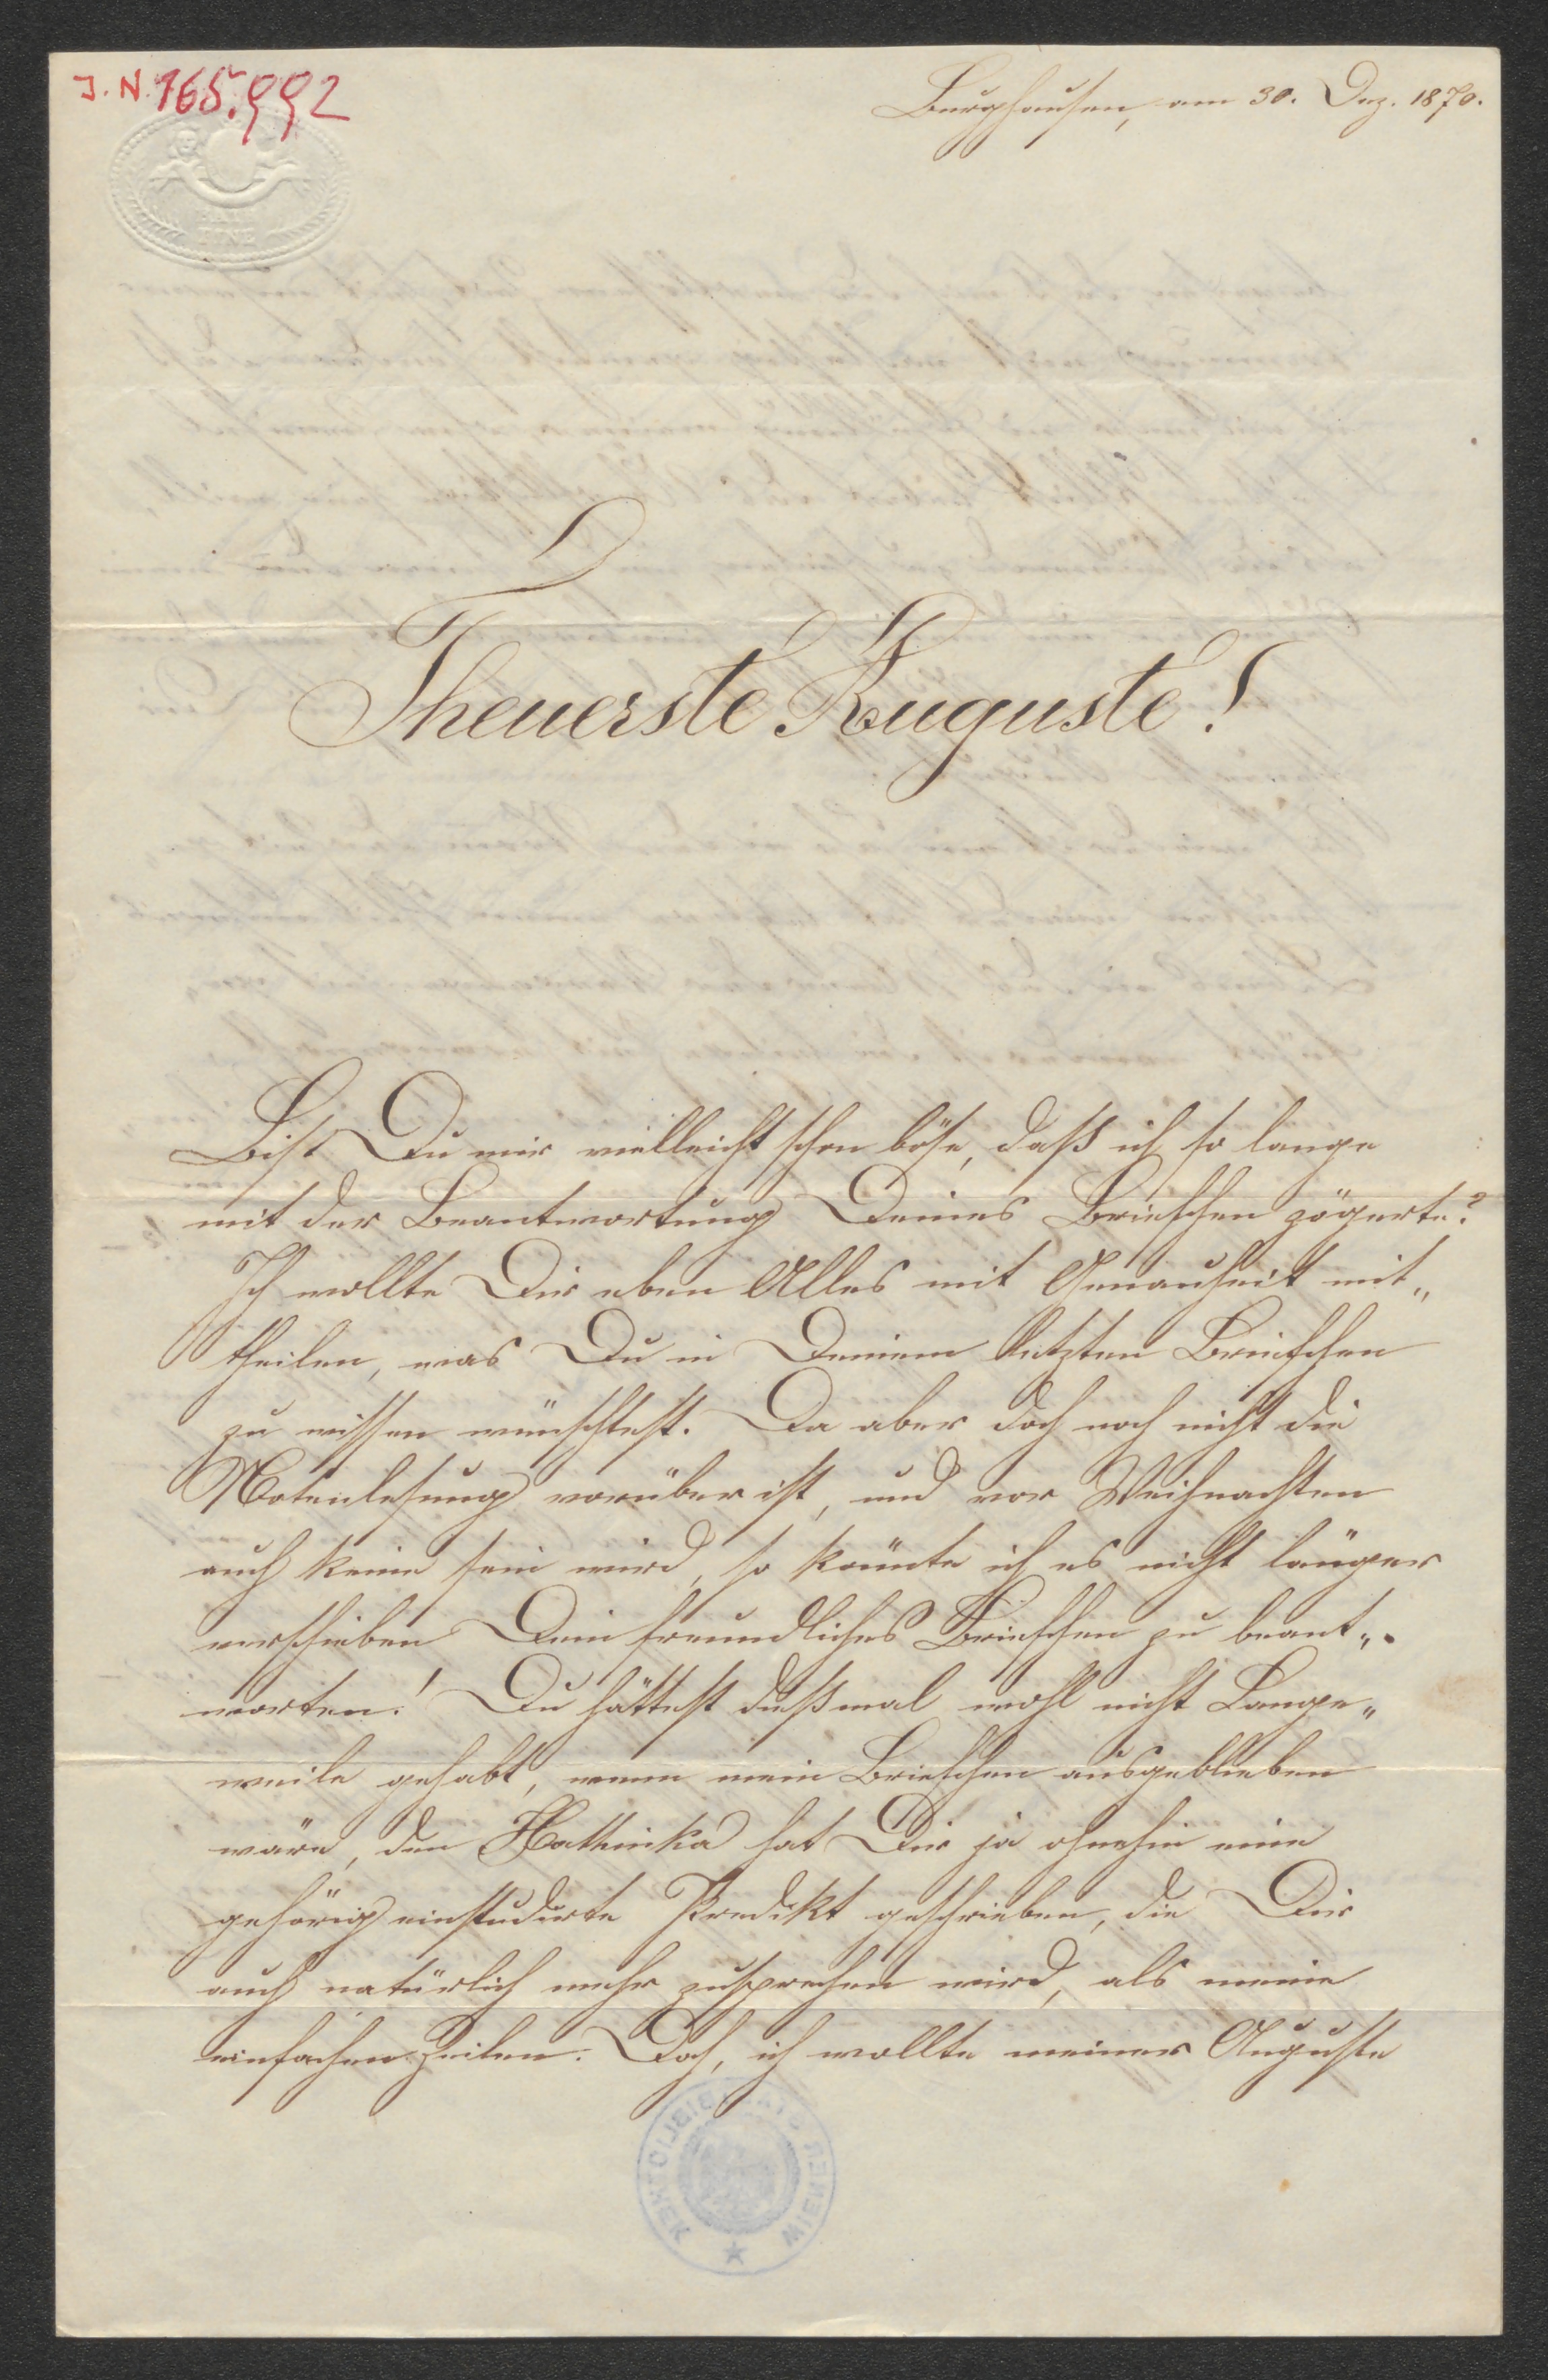 J. N. 165.992
Burghausen, am 30. Dez. 1870.
Theuerste Auguste!
Bist Du mir vielleicht schon böse, daß ich so lange
mit der Beantwortung Deines Briefchen zögerte?
Ich wollte Dir eben Alles mit Genauheit mit„
theilen, was Du in Deinem letzten Briefchen
zu wissen wünschtest. Da aber doch noch nicht die
Notenlesung vorüber ist, und vor Weihnachten
auch keine sein wird, so konnte ich es nicht länger
verschieben Dein freundliches Briefchen zu beant„
worten! Du hättest dießmal wohl nicht Lange„
weile gehabt, wenn mein Briefchen ausgeblieben
wäre, den Kathinka hat Dir ja ohnehin eine
gehörig einstudirte Predikt geschrieben, die Dir
auch natürlich mehr zusprechen wird, als meine
einfachen Zeilen. Doch, ich wollte meiner Auguste
WIENER STADTBIBLIOTHEK